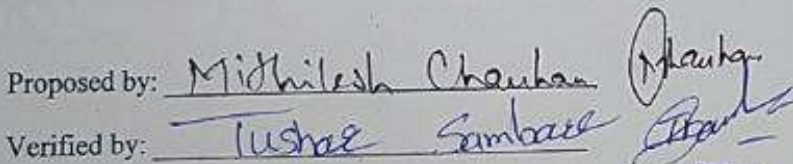 Proposed by: Mithilesh Chauhan
Verified by: Tushar Sambare